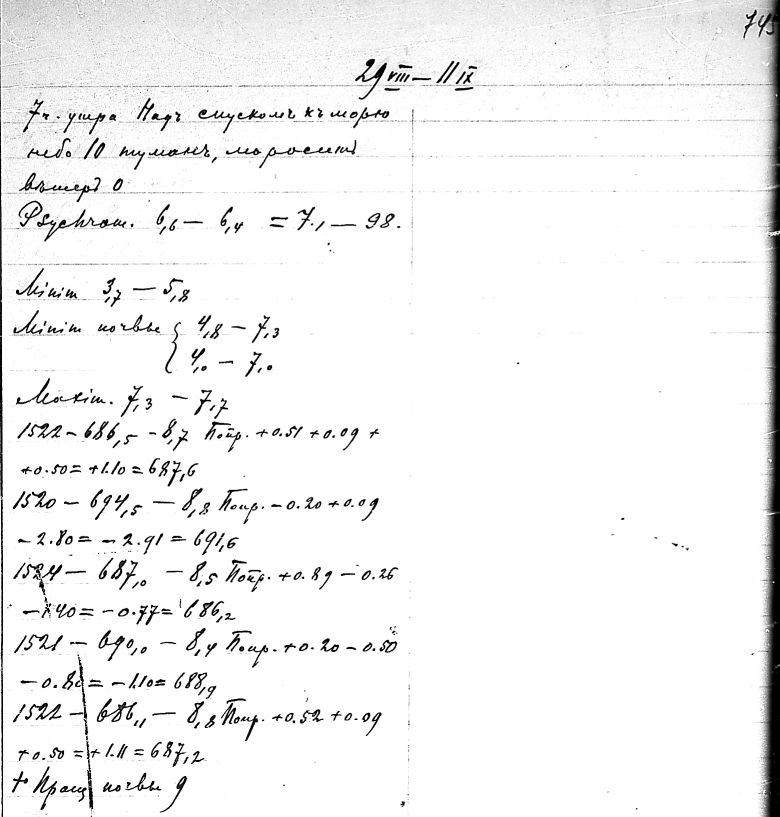 745
29 VIII — 11 IX
7 ч. утра Надъ спускомъ къ морю
небо 10 туманъ, мороситъ
вѣтеръ 0
Psychrom. 6,6 — 6,4 = 7,1 — 98.
Minim 3,7 — 5,8
Minim почвы { 4,8 — 7,3
{ 4,0 — 7,0
Maxim. 7,3 — 7,7
1522 — 686,5 — 8,7 Попр. +0.51 +0.09 +
+0.50 = +1.10 = 687,6
1520 — 694,5 — 8,8 Попр. -0.20 +0.09
-2.80 = -2.91 = 691,6
1524 — 687,0 — 8,5 Попр. +0.89 -0.26
-1.40 = -0.77 = 686,2
1521 — 690,0 — 8,4 Попр. +0.20 -0.50
-0.80 = -1.10 = 688,9
1522 — 686,1 — 8,8 Попр. +0.52 +0.09
+0.50 = +1.11 = 687,2
t° Пращ почвы 9